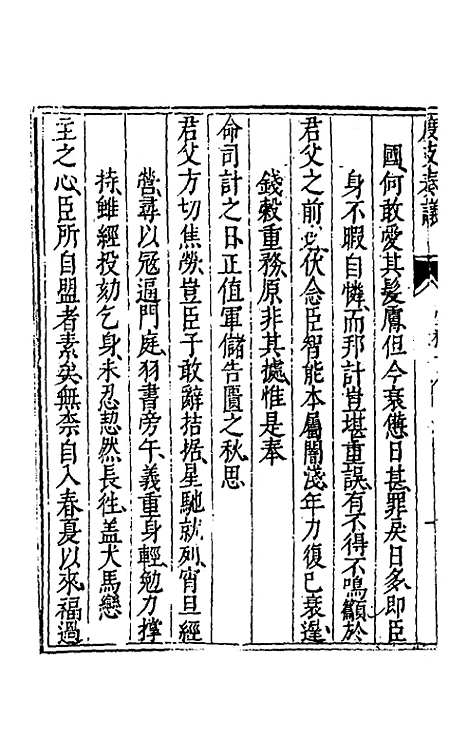 度支奏議
國何敢愛其髮膚但今衰憊日甚罪戾日多即臣
身不暇自憐而邦計豈堪重誤有不得不鳴籲於
君父之前也伏念臣智能本屬闇淺年力復已衰遲
錢穀重務原非其據惟是奉
命司計之日正值軍儲告匱之秋思
君父方切焦勞豈臣子敢辭拮据星馳就列宵旦經
營尋以冦逼門庭羽書旁午義重身輕勉力撐
持雖經投劾乞身未忍恝然長徃蓋犬馬戀
主之心臣所自盟者素矣無柰自入春夏以來福過